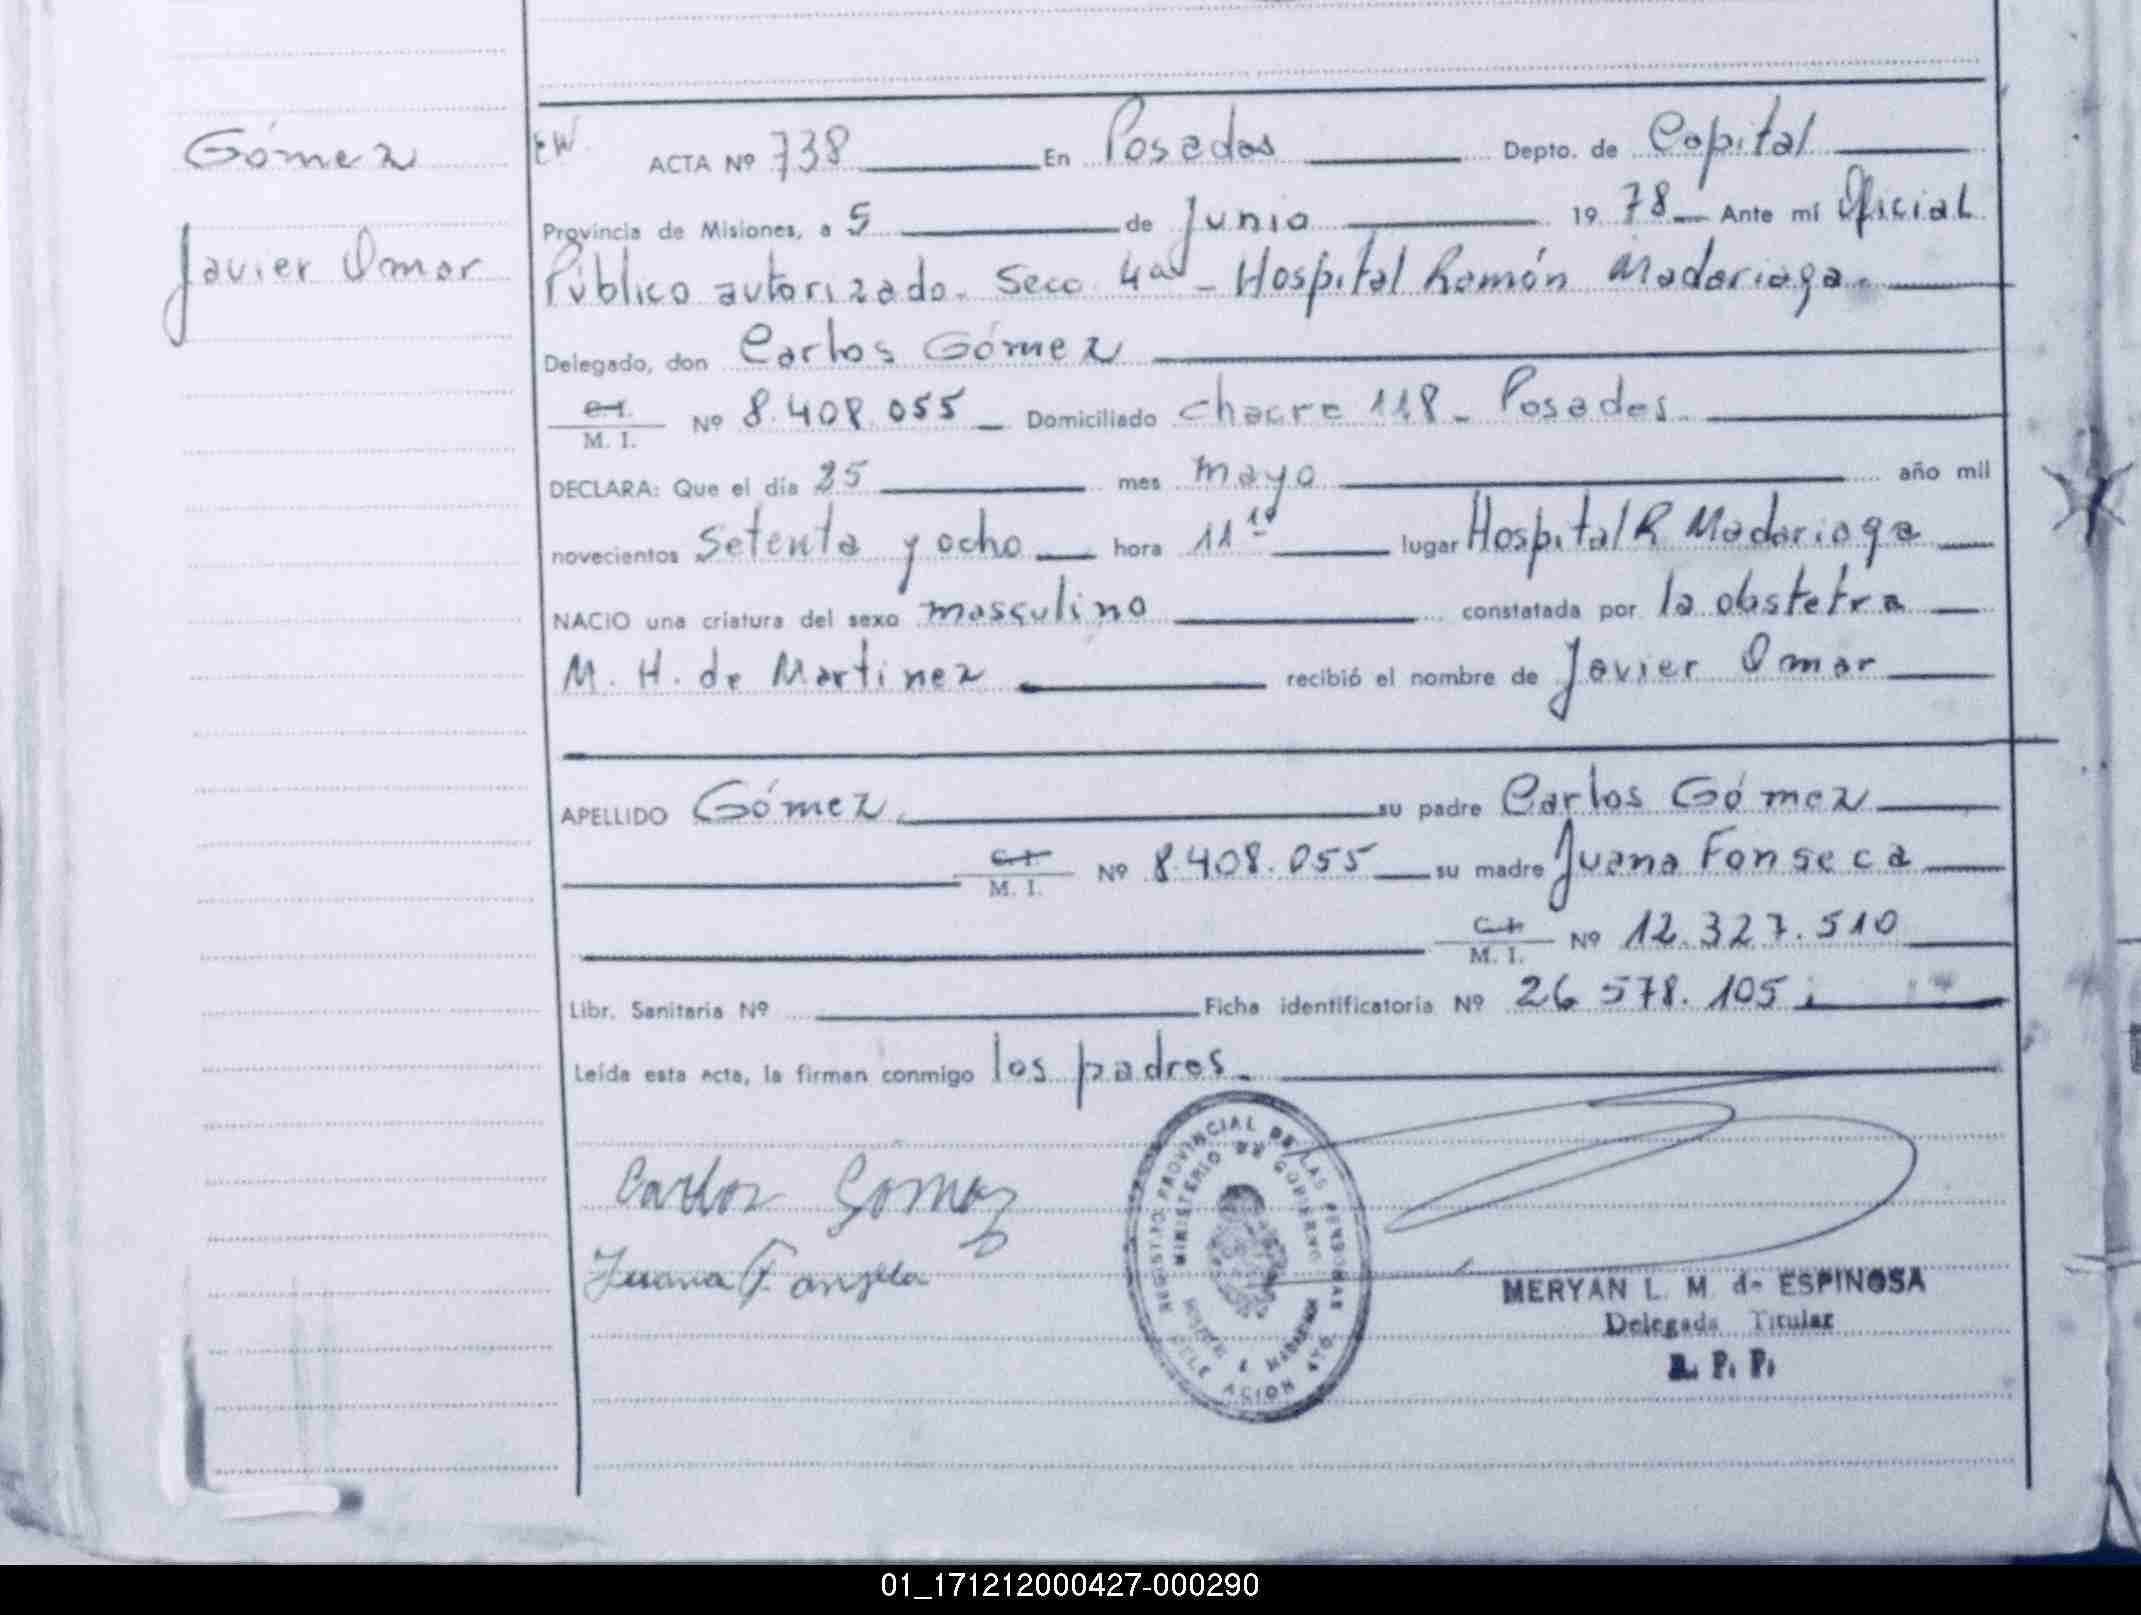 Gómez
Javier Omar
ACTA Nº 738 En Posadas Depto. de Capital
Provincia de Misiones, a 5 de Junio 19 78 Ante mí Oficial
Público autorizado. Secc 4ª - Hospital Ramón Madariaga.
Delegado, don Carlos Gómez
C.I.
M. I. Nº 8.408.055 Domiciliado chacra 118 - Posadas
DECLARA: Que el día 25 mes mayo año mil
novecientos setenta y ocho hora 11 10 lugar Hospital R Madariaga
NACIO una criatura del sexo masculino constatada por la obstetra
M. H. de Martinez recibió el nombre de Javier Omar
APELLIDO Gómez su padre Carlos Gómez
C.I.
M. I. Nº 8.408.055 su madre Juana Fonseca
C.I.
M. I. Nº 12.327.510
Libr. Sanitaria Nº Ficha identificatoria Nº 26 578.105
Leída esta acta, la firman conmigo los padres.
Carlos Gomez
Juana F.
REGISTRO PROVINCIAL DE LAS PERSONAS
MINISTERIO DE GOBIERNO
MERYAN L. M. de ESPINOSA
Delegada Titular
R. P. P.
01_171212000427-000290